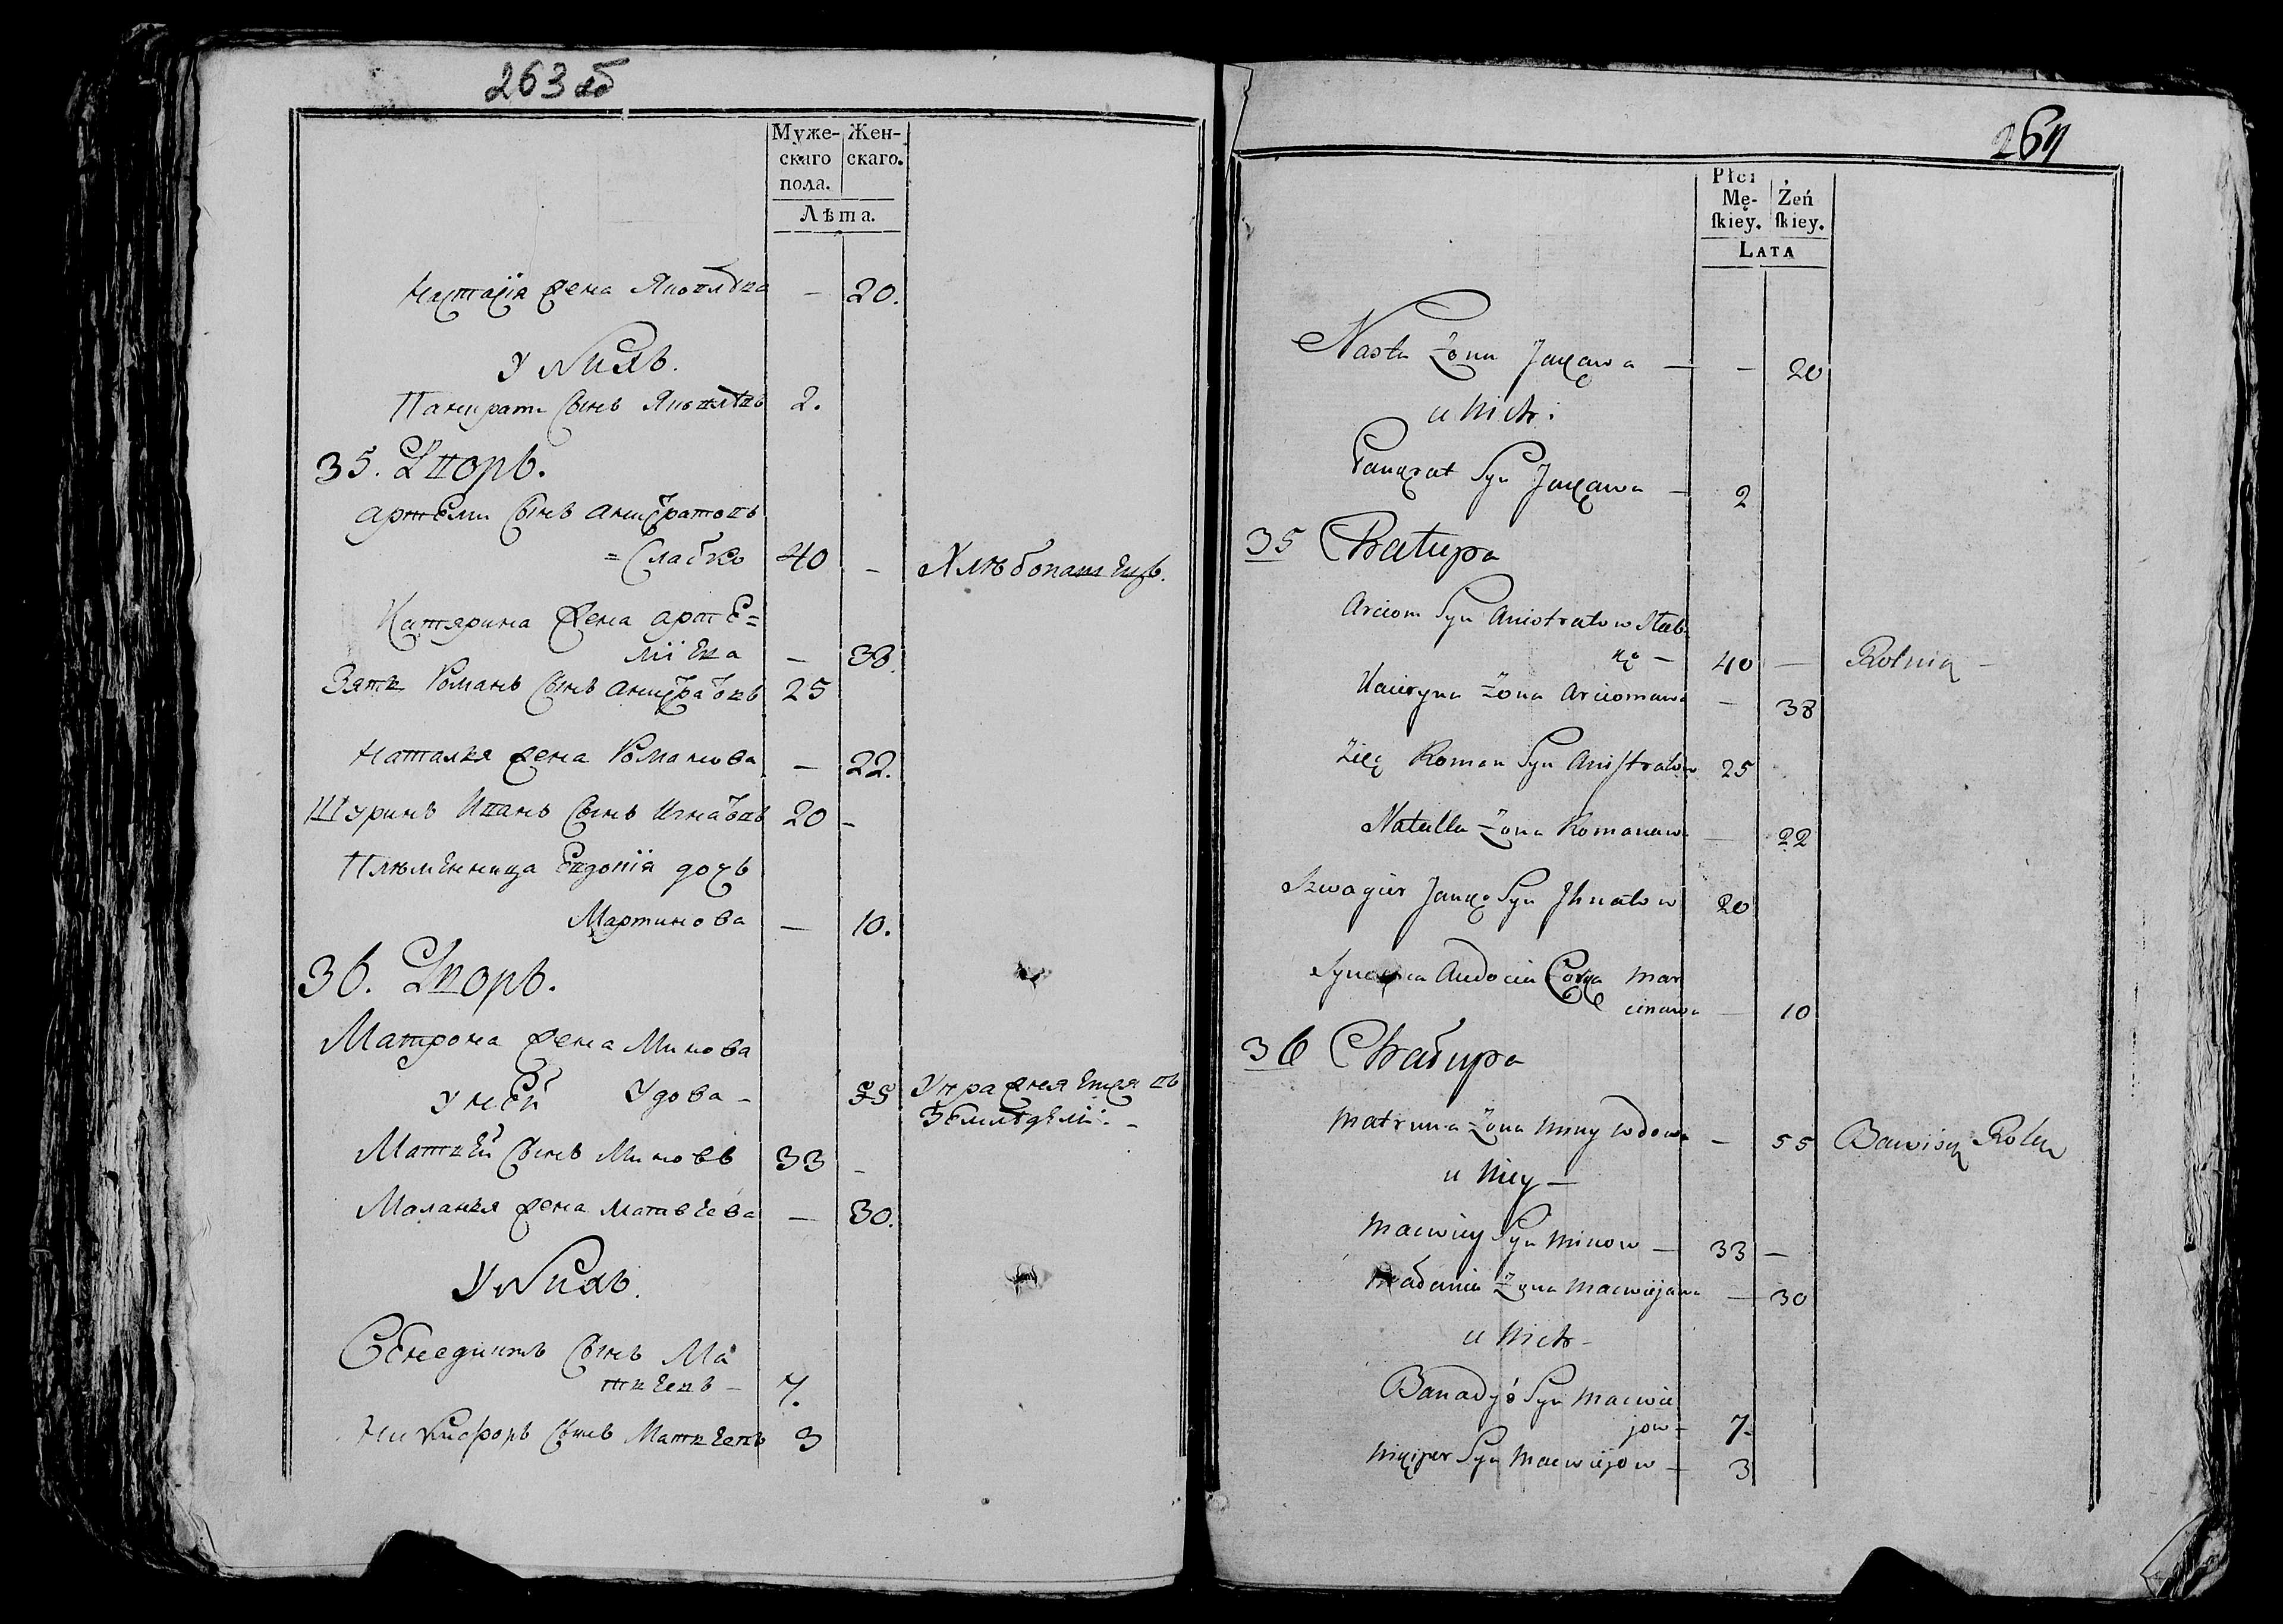 263 об
Муже-
скаго
пола.
Жен-
скаго.
Лѣта.
Настасія жена Яковлѣва — 20.
У Нихъ.
Панкратъ Сынъ Яковлѣвъ 2.
35. Дворъ.
Артеми Сынъ Анистратовъ
=Слабко 40 - Хлѣбопашецъ.
Катярина жена Арте=
міева — 38.
Зять Романъ Сынъ Анистратовъ 25
Наталья жена Романова — 22.
Шуринъ Иванъ Сынъ Игнатовъ 20 -
Племѣнница Евдокія дочь
Мартинова — 10.
36. Дворъ.
Матрона жена Минова
у ней Удова - 55 Упражняется въ
Земледѣліи. -
Матвей Сынъ Миновъ 33 -
Маланья жена Матвеева — 30.
У Нихъ.
Бенединтъ Сынъ Ма
твеевъ - 7.
Никифоръ Сынъ Матвеевъ 3
264
Płci
Mę-
ſkiey.
Żeń
ſkiey.
LATA
Nasta Żona Jakowa — - 20
u Nich:
Pankrat Syn Jakowa — 2
35 Chatupa
Arciom Syn Anistratow Slab
ko — 40 — Rolnik -
Kacieryna Żona Arciomowa - 38
Zieć Roman Syn Anistratow 25
Natalla Żona Romanowa — 22
Szwagier Janko Syn Ihnatow 20
Audocia Corka Mar
cinowa — 10
36 Chatupa
Matruna Żona Miny Wdowa — 55 Bawi się Rolą
u Niey —
Macwiey Syn Minow — 33 —
Małania Żona Macwiejowa — 30
u Nich -
Banadyś Syn Macwie
jow - 7.
Mikiper Syn Macwiejow — 3